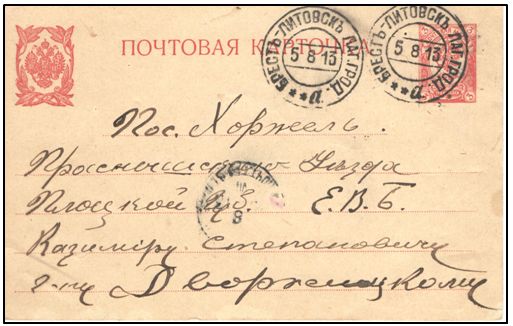 ПОЧТОВАЯ КАРТОЧКА
БРЕСТЪ-ЛИТОВСКЪ ЛАГ. ГОР.
5 8 13
**а
БРЕСТЪ-ЛИТОВСКЪ ЛАГ. ГОР.
5 8 13
**а
Пос. Хоржель.
Праснышскаго Уѣзда
Плоцкой Губ. Е.В.Б.
Казимiру Степановичу
г-ну Дворжецкому